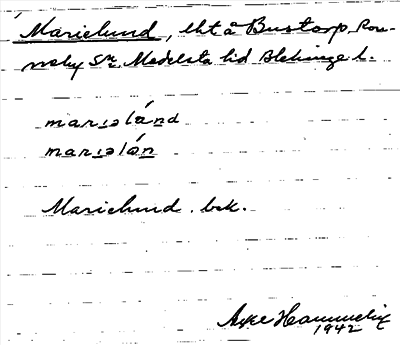 Marielund, lht å Bustorp, Ron-
neby sn, Medelsta hd Blekinge l.
marıəlánd
marıəlán
Marielund. bek.
Åke Hammelig
1942